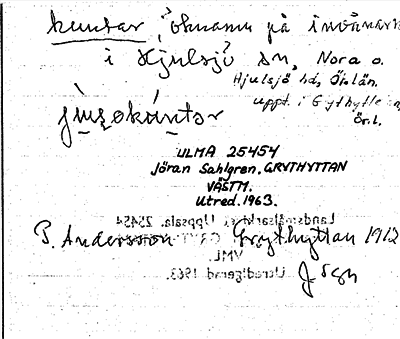 kuntar, öknamn på invånare
i Hjulsjö sn, Nora o.
Hjulsjö hd, Ör.län.
uppt. i Grythyttan
Ör.l.
ULMA 25454
Jöran Sahlgren. GRYTHYTTAN
VÄSTM.
Utred. 1963.
Landsmålsarkivet Uppsala. 25454
VML.
Utredigerad 1963.
P. Andersson Grythyttan 1912
J Sgn